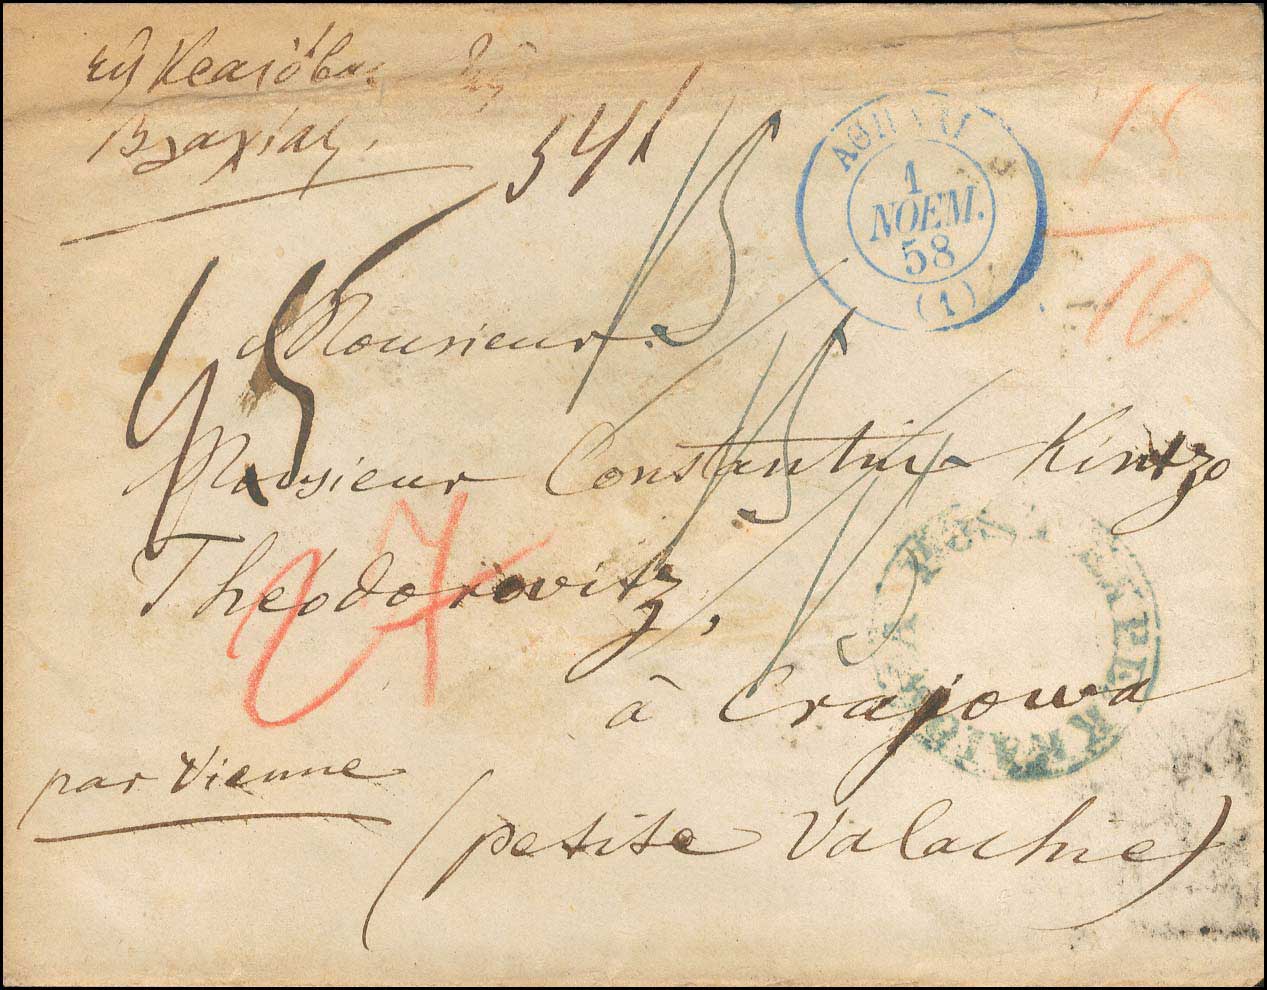 εἰς Κραιόβαν τῆς
Βλαχίας.
ΑΘΗΝΑΙ
1
ΝΟΕΜ.
58
(1)
15
10
45
Monsieur
Monsieur Constantin Kintzo
Théodorovitz,
27
à Crajowa
(petite Valachie)
par Vienne